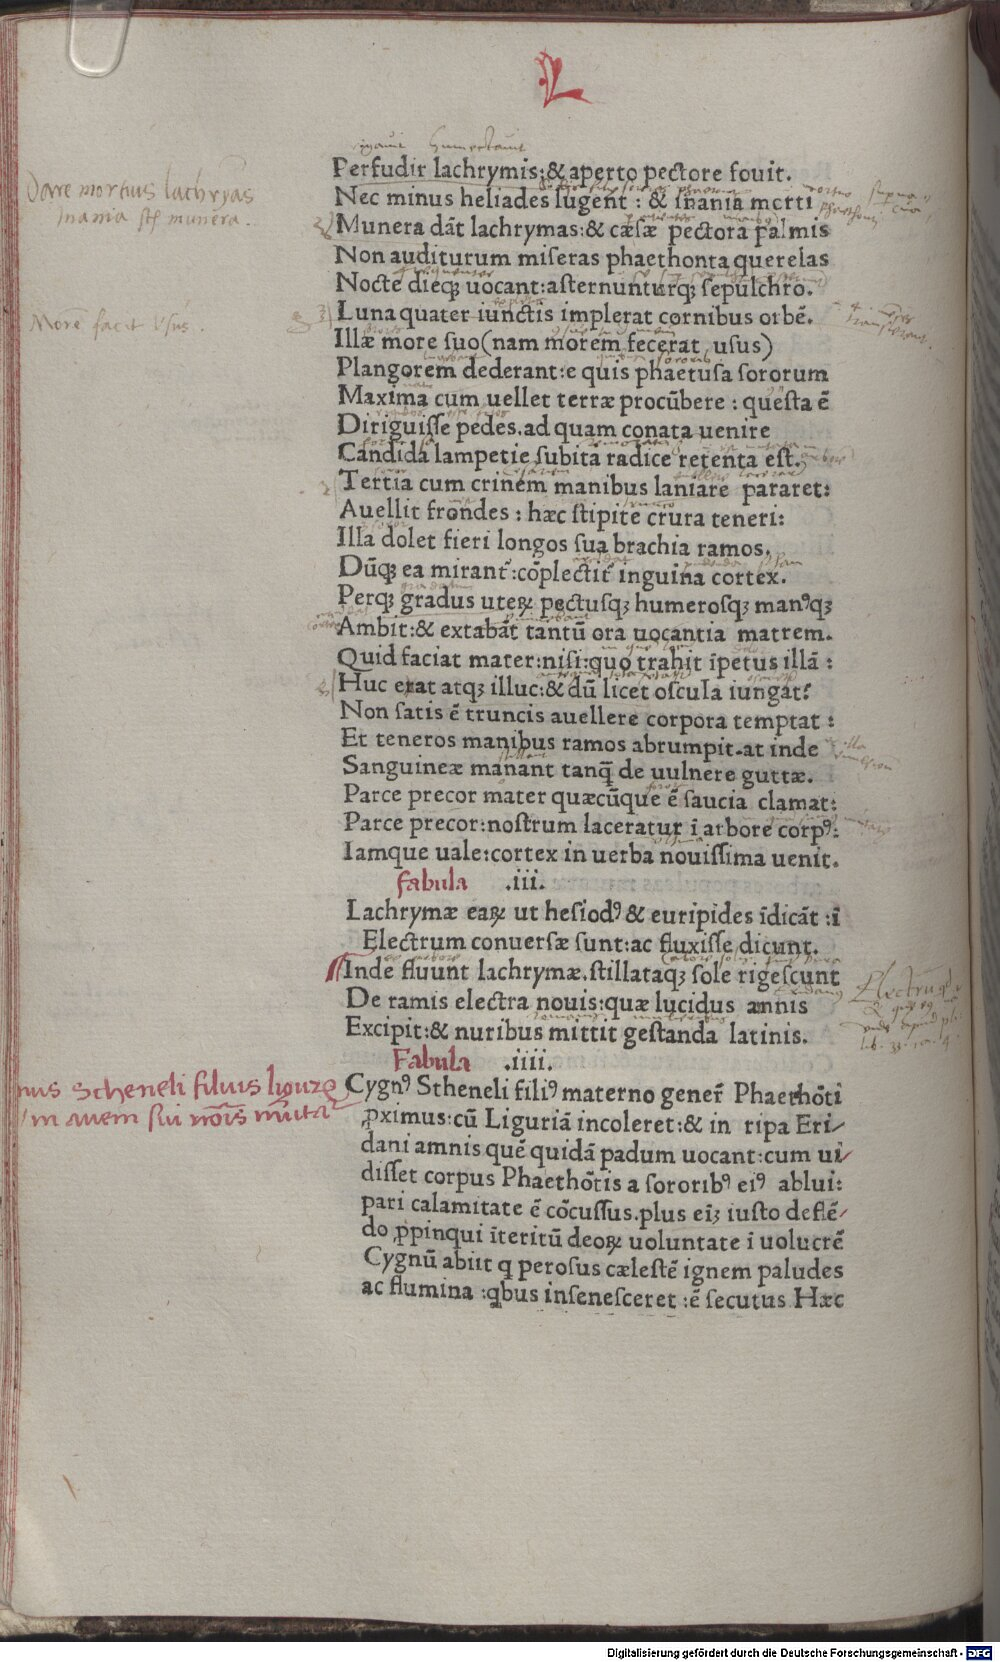 L
Perfudit lachrymis:& aperto pectore fouit.
Nec minus heliades lugent : & inania morti
Munera dāt lachrymas:& cæsæ pectora palmis
Non auditurum miseras phaethonta querelas
Nocte dieqꝫ uocant:asternunturqꝫ sepulchro.
Luna quater iunctis implerat cornibus orbē.
Illæ more suo(nam morem fecerat usus)
Plangorem dederant:e quis phaetusa sororum
Maxima cum uellet terræ procūbere : questa ē
Diriguisse pedes.ad quam conata uenire
Candida lampetie subita radice retenta est.
Tertia cum crinem manibus laniare pararet:
Auellit frondes : hæc stipite crura teneri:
Illa dolet fieri longos sua brachia ramos.
Dūqꝫ ea mirant᷑:cōplectit᷑ inguina cortex.
Perqꝫ gradus uteꝝ pectusqꝫ humerosqꝫ manꝰqꝫ
Ambit:& extabāt tantū ora uocantia matrem.
Quid faciat mater:nisi:quo trahit īpetus illā :
Huc erat atqꝫ illuc:& dū licet oscula iungat?
Non satis ē truncis auellere corpora temptat :
Et teneros manibus ramos abrumpit.at inde
Sanguineæ manant tanq̄ de uulnere guttæ.
Parce precor mater quæcūque ē saucia clamat:
Parce precor:nostrum laceratur i arbore corpꝰ:
Iamque uale:cortex in uerba nouissima uenit.
fabula .iii.
Lachrymæ eaꝝ ut hesiodꝰ & euripides īdicāt :ī
Electrum conuersæ sunt:ac fluxisse dicunt.
Inde fluunt lachrymæ.stillataqꝫ sole rigescunt
De ramis electra nouis:quæ lucidus amnis
Excipit:& nuribus mittit gestanda latinis.
Fabula .iiii.
Cygnꝰ Stheneli filiꝰ materno gener̄ Phaethōti
ꝓximus:cū Liguriā incoleret:& in ripa Eri/
dani amnis quē quidā padum uocant:cum ui/
disset corpus Phaethōtis a sororibꝰ eiꝰ ablui:
pari calamitate ē cōcussus.plus eīꝫ iusto deflē/
do ꝓpinqui īteritū deoꝝ uoluntate i uolucrē
Cygnū abiit q perosus cælestē ignem paludes
ac flumina :qbus insenesceret :ē secutus Hæc
Dare mortuis lachrymas
Inania st̄ munera.
Morē facit Vsus.
nus Scheneli filuis
in auem sui nōis mutat̄
Digitalisierung gefördert durch die Deutsche Forschungsgemeinschaft - DFG